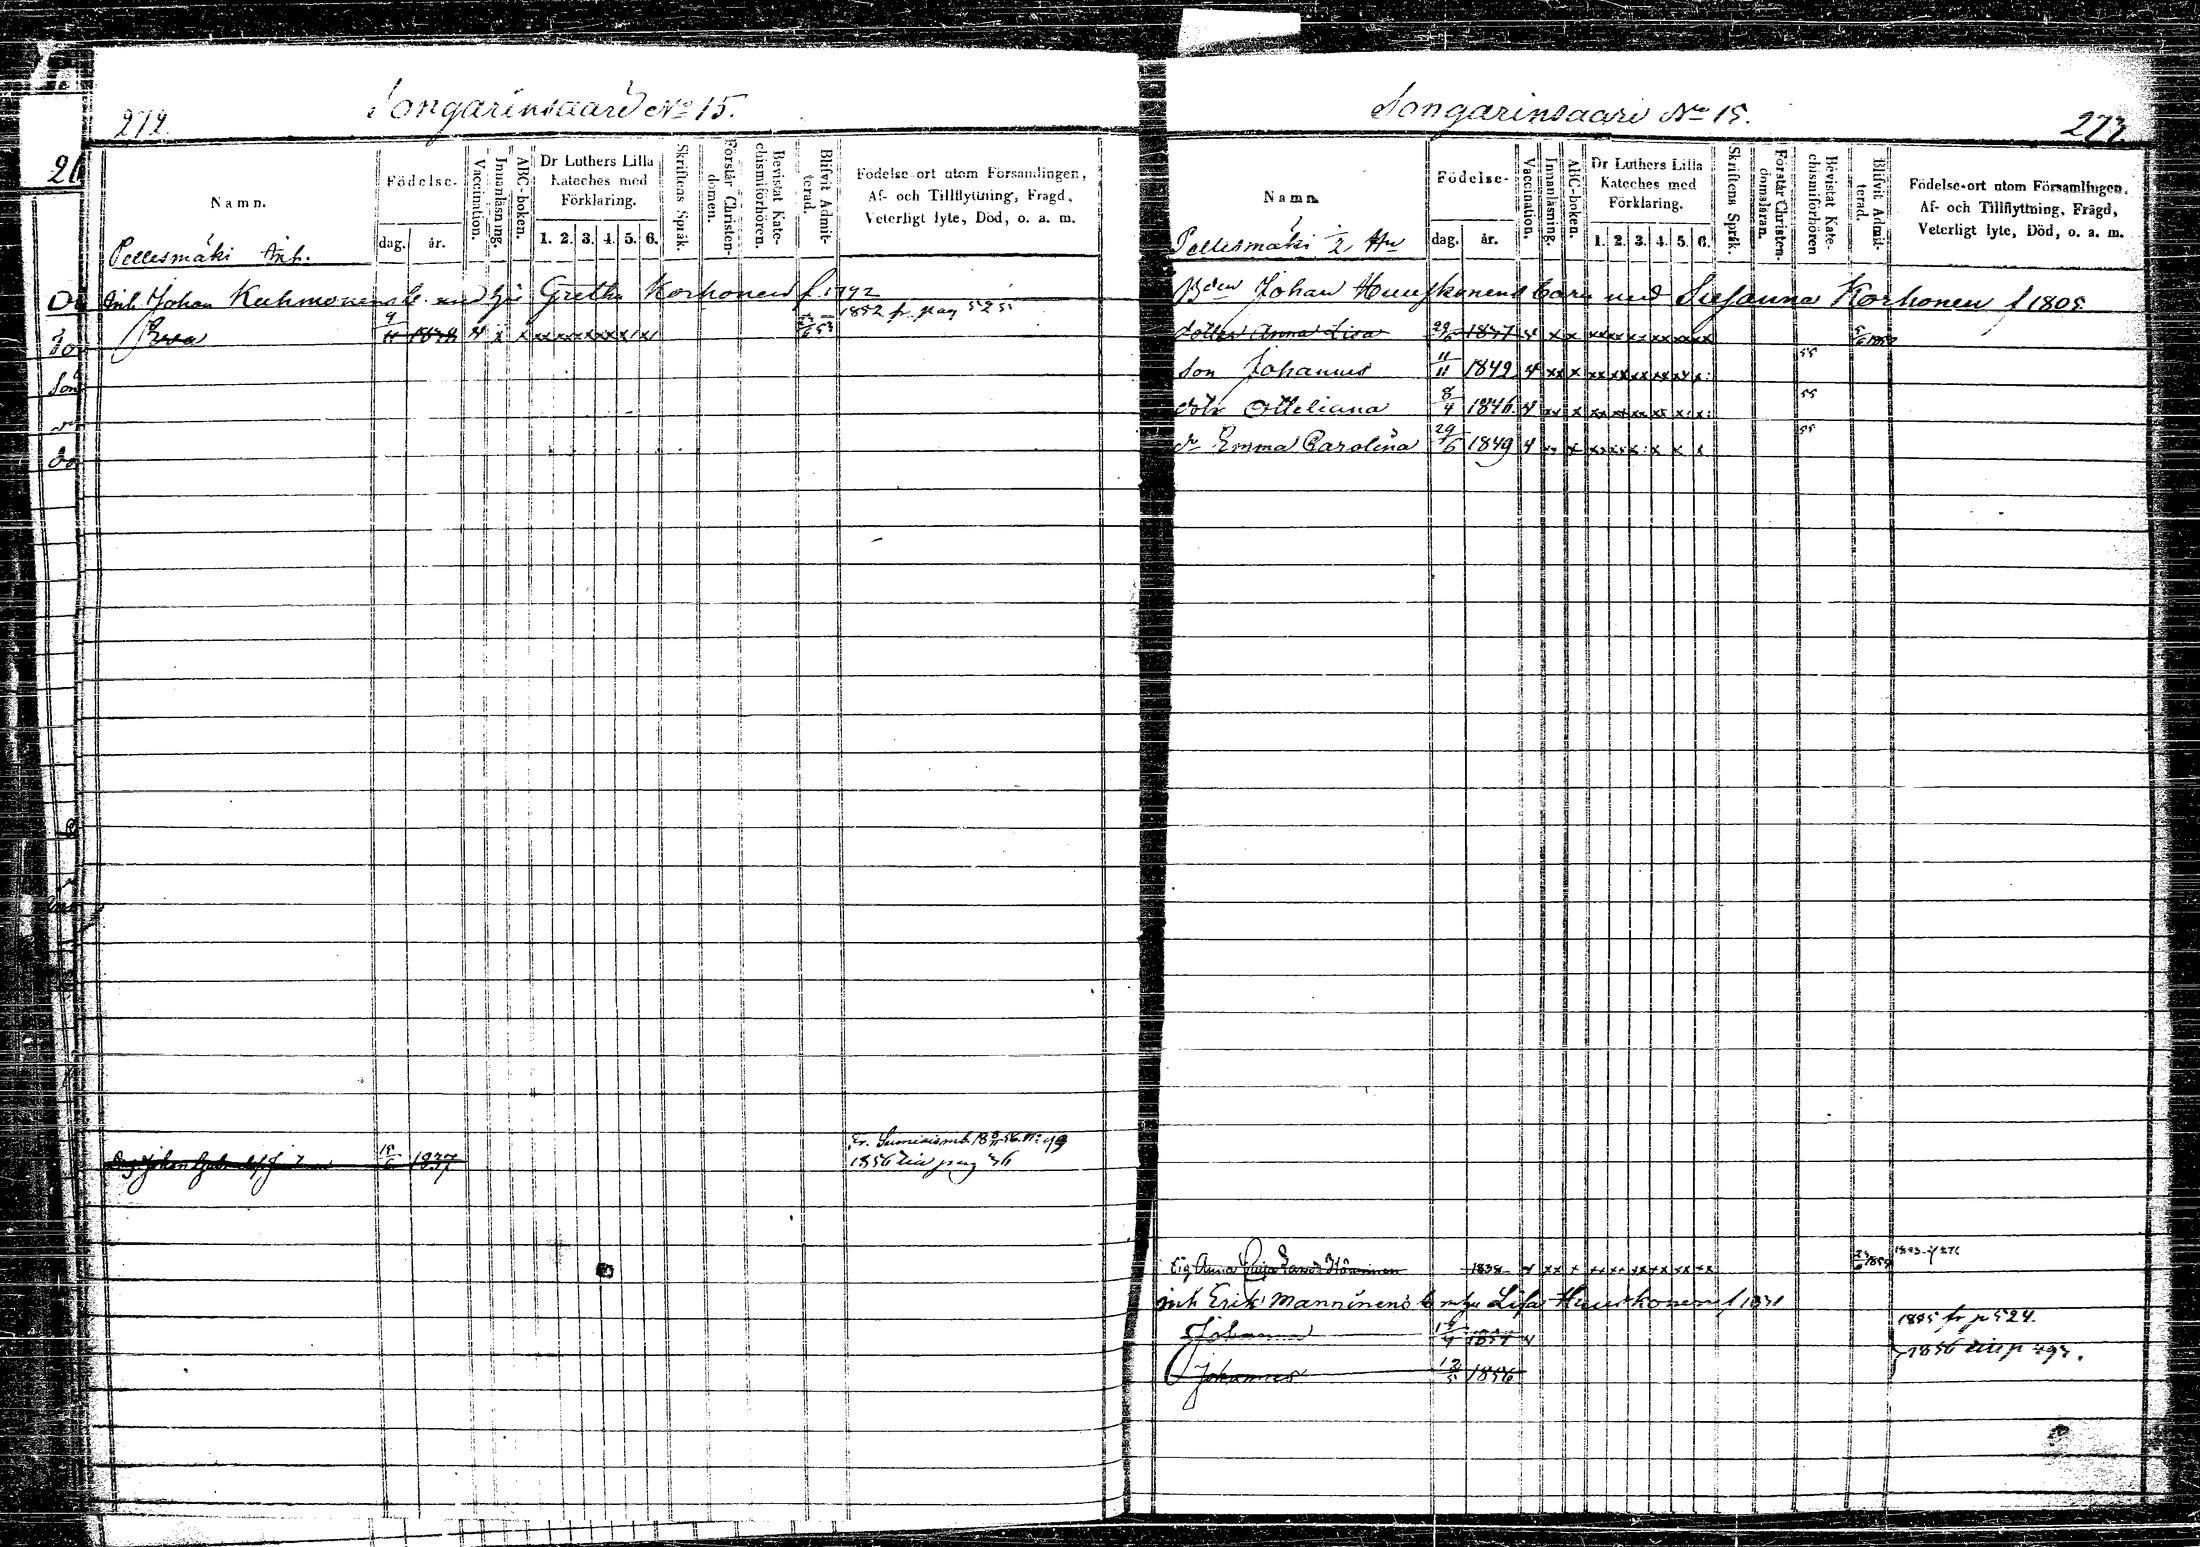 272.
Songarinsaari No 15.
Namn.
Födelse-
dag. år.
Vaccination.
Innanläsning.
ABC-boken.
Dr Luthers Lilla
Kateches med
Förklaring.
1. 2. 3. 4. 5. 6.
Skriftens Språk.
Förstår Christen-
domen.
Bevistat Kate-
chismiförhören.
Blifvit Admit-
terad.
Födelse-ort utom Församlingen,
Af- och Tillflyttning, Frägd,
Veterligt lyte, Död, o. a. m.
Pellesmäki Inh.
Inh. Johan Kuhmonens b. med Gretha Korhonen f. 1792
Eeva 9/11 1838 1852 fr. pag 525
Johan 15/6 1837
1856 till pag 36
273.
Songarinsaari No 15.
Namn.
Födelse-
dag. år.
Vaccination.
Innanläsning.
ABC-boken.
Dr Luthers Lilla
Kateches med
Förklaring.
1. 2. 3. 4. 5. 6.
Skriftens Språk.
Förstår Christen-
domsläran.
Bevistat Kate-
chismiförhören
Blifvit Admit-
terad.
Födelse-ort utom Församlingen,
Af- och Tillflyttning, Frägd,
Veterligt lyte, Död, o. a. m.
Pellesmäki 1/2 Hn
Bden Johan Huuskonens barn med Susanna Korhonen f 1805
dotter Anna Lisa 29/6 1837
son Johannes 11/11 1842 55
dotr Otteliana 8/4 1846 55
dr Emma Carolina 29/6 1849 55
Pig Anna 1838
inh Erik Manninens b m hu Lisa Huuskonen f 1831
Johanna 1854 1855 fr p 524.
Johannes 12/5 1856 1856 till p 497.